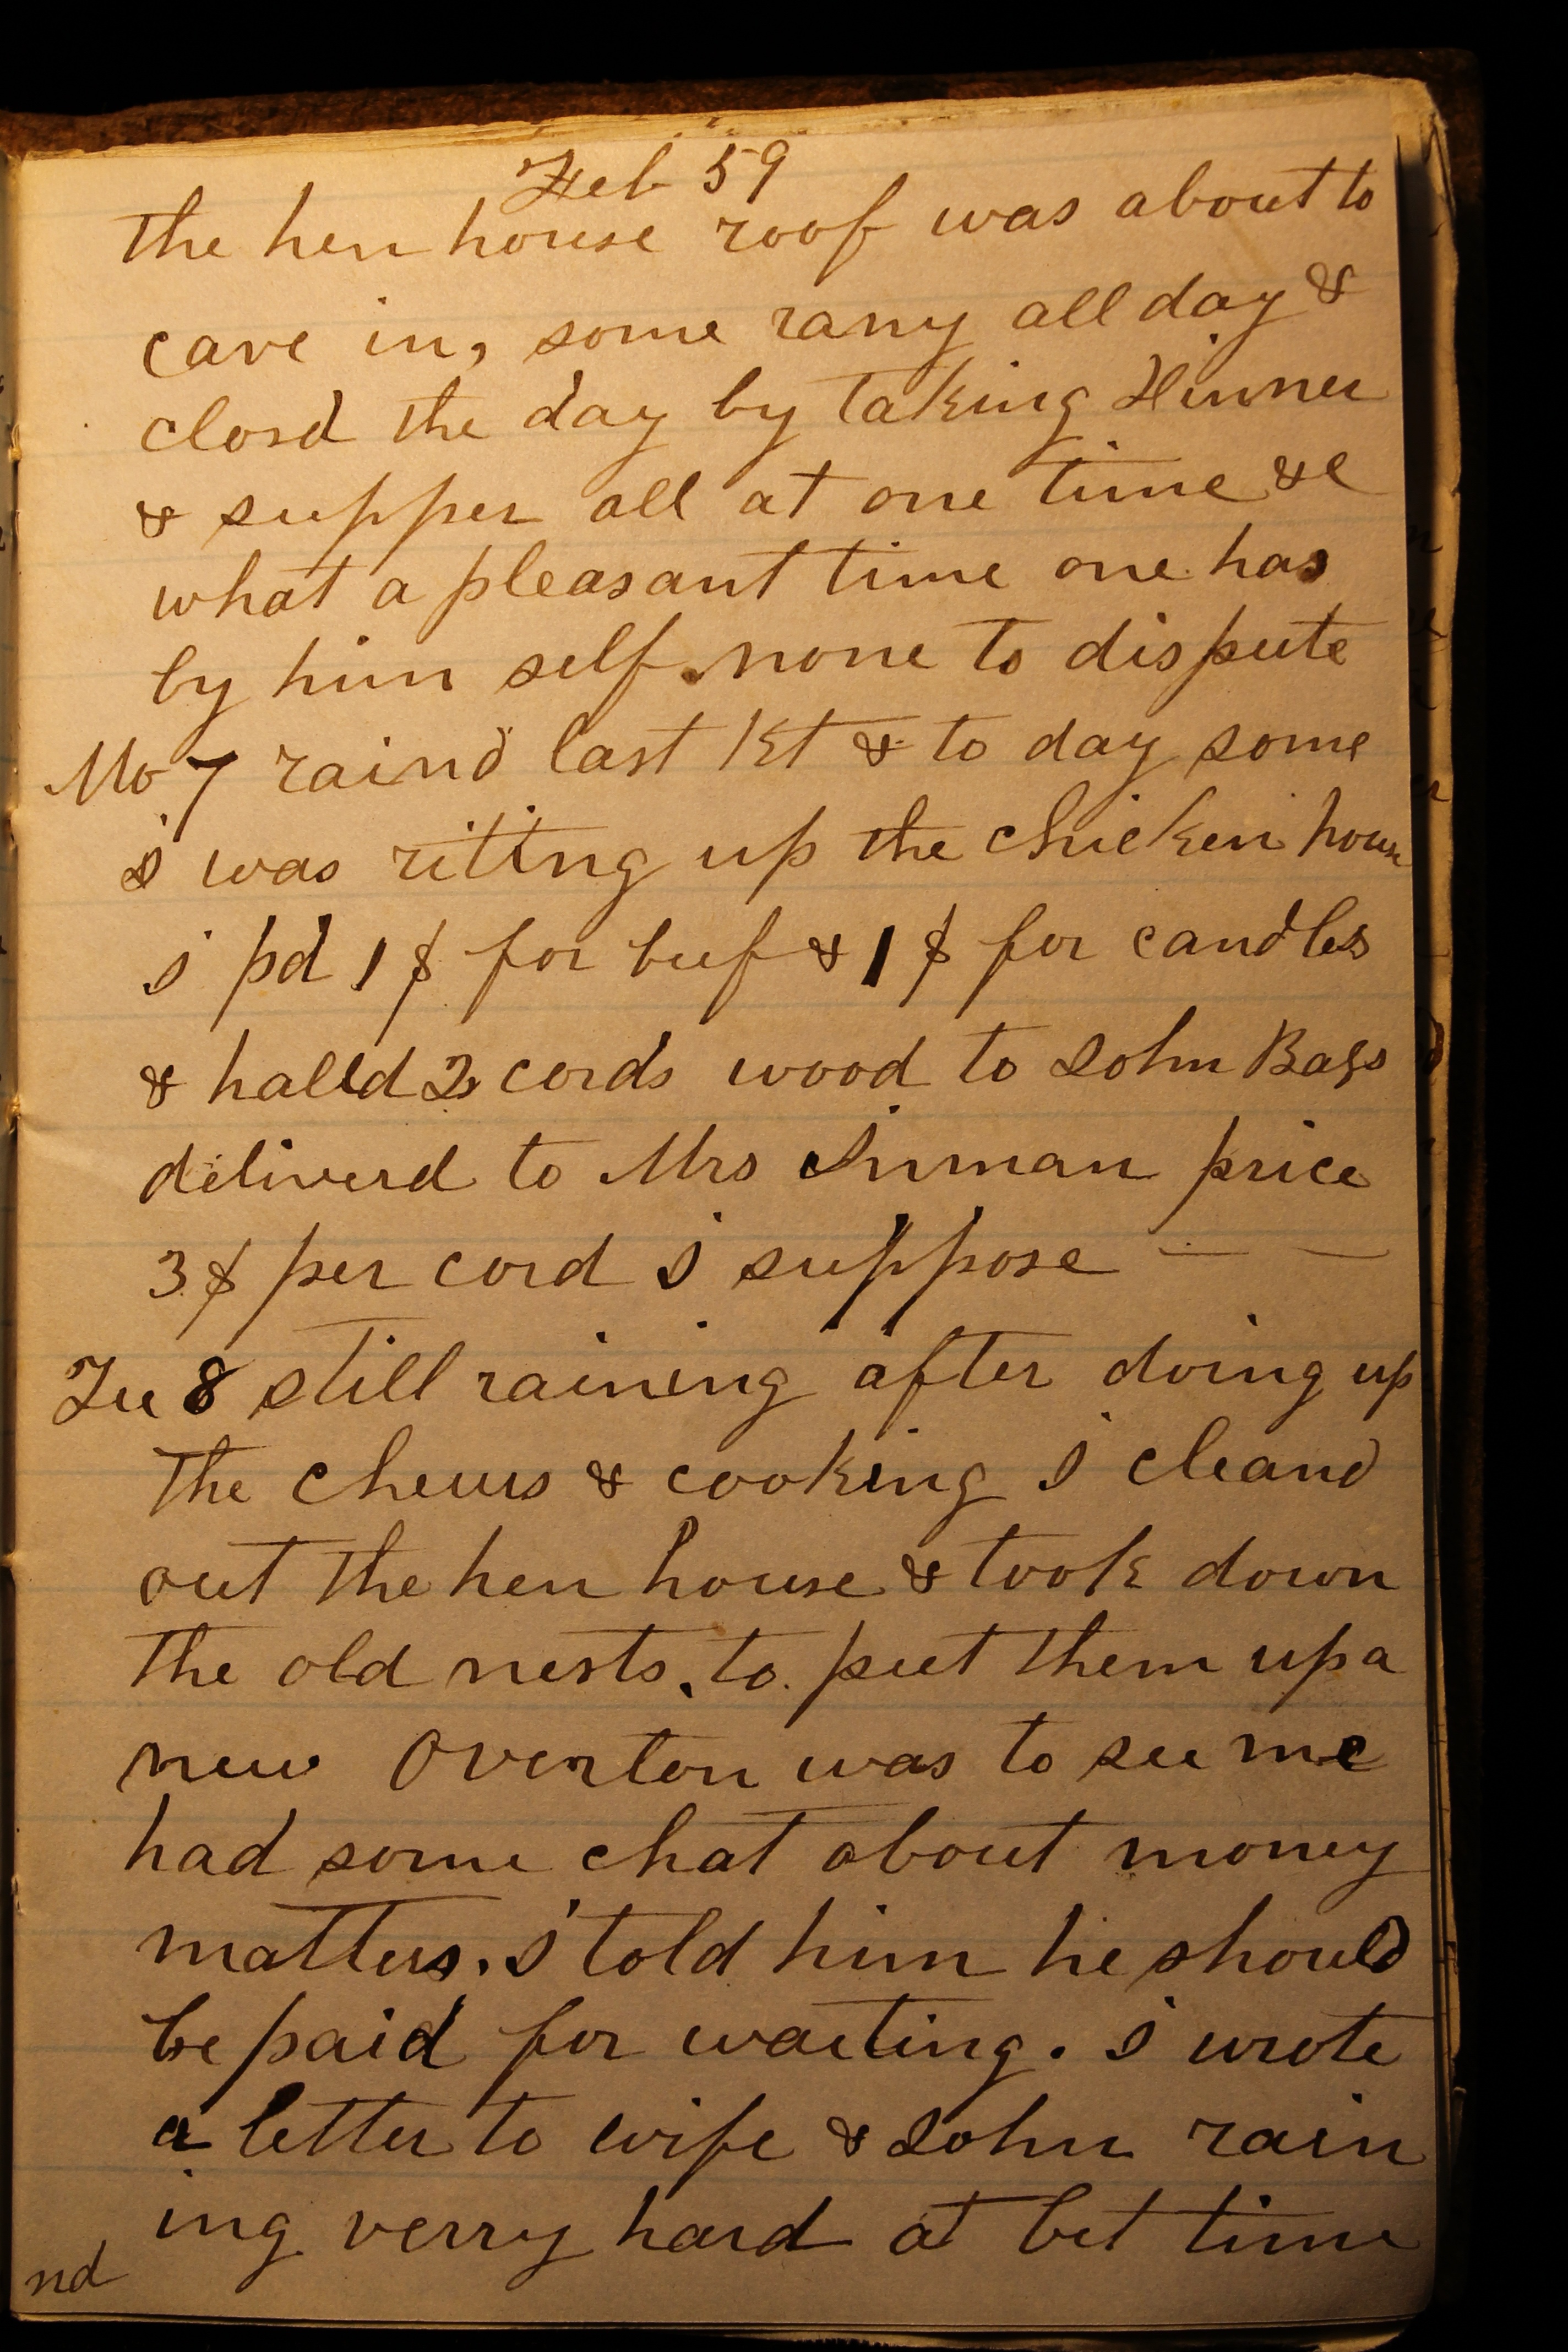 Feb 59
the hen house roof was about to
cave in, some rany all day &
closd the day by taking Dinner
& supper all at one time &c
what a pleasant time one has
by him self. none to dispute
Mo 7 raind last Kt & to day some
i was ritting up the chicken house
i pd 1$ for beef & 1$ for candles
& halld 2 cords wood to John
deliverd to Mrs Inman price
3$ per cord I suppose — —
Tu 8 still raining after doing up
the cheurs & cooking I cleand
out the hen house & took down
the old nests. to put them up a
new Overton was to see me
had some chat about money
matters. I told him he should
be paid for waiting. I wrote
a letter to wife & John rain
ing verry hard at bet time
nd